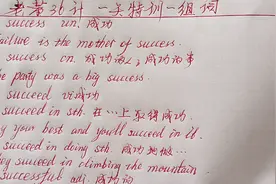 考36计一美特训一组词
success un. 成功
ailure is the mother of success.
success cn. 成功的人;成功的事
he party was a big success.
succeed vi 成功
succeed in sth. 在…上取得成功.
y your best and you'll succeed in it.
succeed in doing sth 成功地做…
ey succeed in climbing the mountain.
successful adj. 成功的